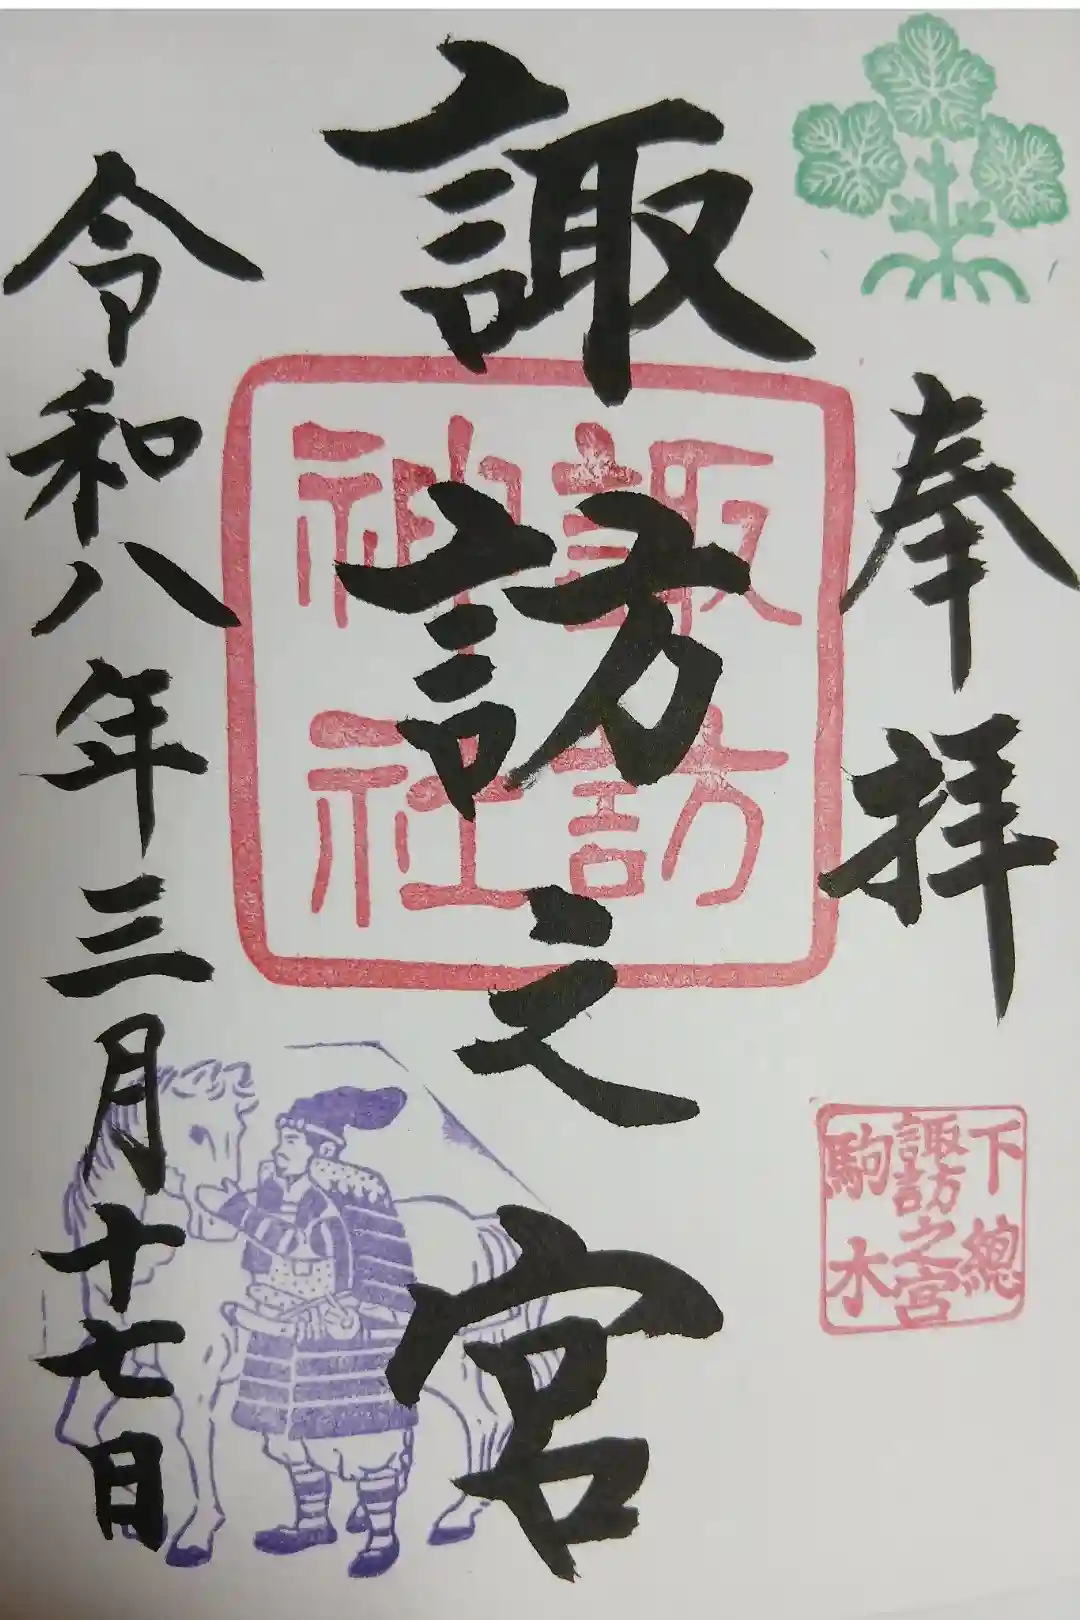 奉拝
下總
諏訪之宮
駒木
諏訪之宮
諏訪
神社
令和八年三月十七日